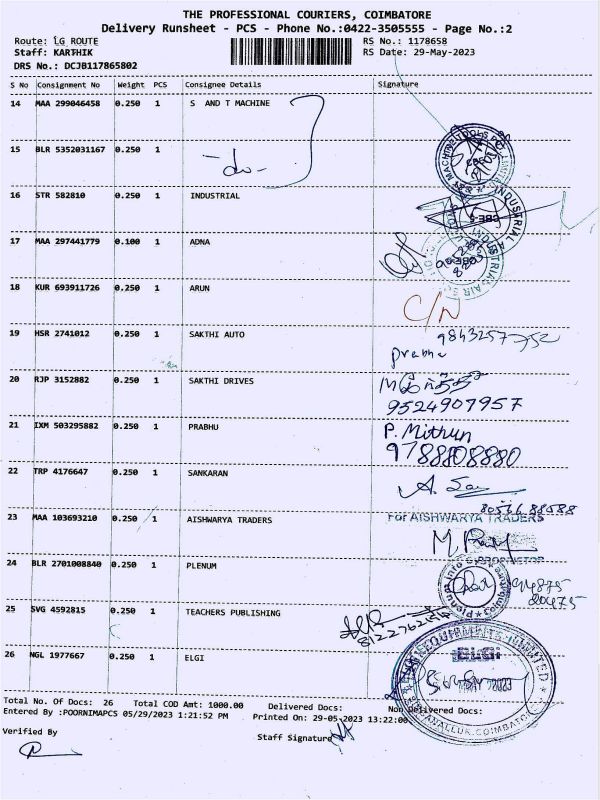 THE PROFESSIONAL COURIERS, COIMBATORE
Delivery Runsheet - PCS - Phone No.:0422-3505555 - Page No.:2
Route: LG ROUTE
RS No.: 1178658
Staff: KARTHIK
RS Date: 29-May-2023
DRS No.: DCJB117865802
S No Consignment No Weight PCS Consignee Details Signature
14 MAA 299046458 0.250 1 S AND T MACHINE
15 BLR 5352031167 0.250 1
-do-
16 STR 582810 0.250 1 INDUSTRIAL
17 MAA 297441779 0.100 1 ADNA
18 KUR 693911726 0.250 1 ARUN
C/N
19 HSR 2741012 0.250 1 SAKTHI AUTO
prabhu
20 RJP 3152882 0.250 1 SAKTHI DRIVES
9524907957
21 IXM 503295882 0.250 1 PRABHU P. Mithun
9788808880
22 TRP 4176647 0.250 1 SANKARAN
23 MAA 103693210 0.250 1 AISHWARYA TRADERS For AISHWARYA TRADERS
24 BLR 2701008840 0.250 1 PLENUM
25 SVG 4592815 0.250 1 TEACHERS PUBLISHING
26 NGL 1977667 0.250 1 ELGI
ELGI
Total No. Of Docs: 26 Total COD Amt: 1000.00 Delivered Docs: Non Delivered Docs:
Entered By :POORNIMAPCS 05/29/2023 1:21:52 PM Printed On: 29-05-2023 13:22:00
Verified By
Staff Signature